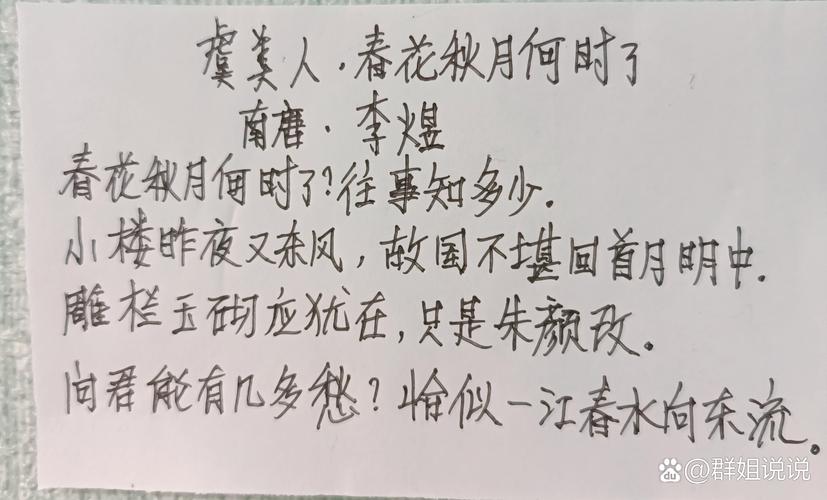 虞美人·春花秋月何时了
南唐·李煜
春花秋月何时了?往事知多少.
小楼昨夜又东风,故国不堪回首月明中.
雕栏玉砌应犹在,只是朱颜改。
问君能有几多愁?恰似一江春水向东流。
Bai du @群姐说说